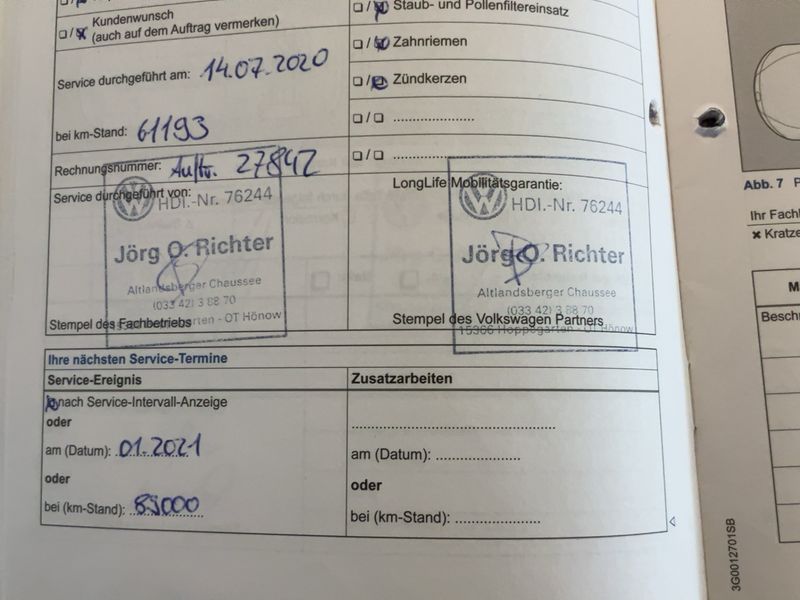 Kundenwunsch
(auch auf dem Auftrag vermerken)
Service durchgeführt am: 14.07.2020
bei km-Stand: 61193
Rechnungsnummer: Auftr. 27842
Service durchgeführt von:
HDL.-Nr. 76244
Jörg O. Richter
Altlandsberger Chaussee
(033 42) 3 88 70
- OT Hönow
Stempel des Fachbetriebs
Staub- und Pollenfiltereinsatz
Zahnriemen
Zündkerzen
LongLife Mobilitätsgarantie:
HDL.-Nr. 76244
Jörg O. Richter
Altlandsberger Chaussee
(033 42) 3 88 70
15366 Hoppegarten - OT Hönow
Stempel des Volkswagen Partners
Ihre nächsten Service-Termine
Service-Ereignis
nach Service-Intervall-Anzeige
oder
am (Datum): 01.2021
oder
bei (km-Stand):
Zusatzarbeiten
am (Datum):
oder
bei (km-Stand):
Abb. 7 P
Ihr Fachl
Kratze
M
Besch
3G0012701SB